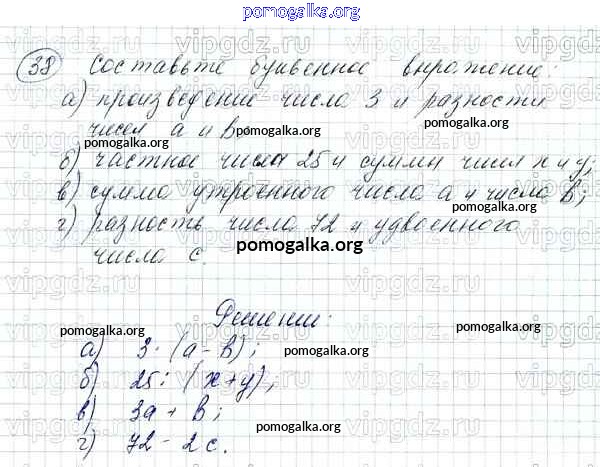 pomogalka.org
38 Составьте буквенное выражение:
а) произведение числа 3 и разности
чисел a и b
pomogalka.org
pomogalka.org
б) частное числа 25 и суммы чисел x и y;
в) сумма утроенного числа a и числа b;
г) разность числа 72 и удвоенного
числа c.
pomogalka.org
Решение:
pomogalka.org
pomogalka.org
а) 3·(a-b);
pomogalka.org
б) 25:(x+y);
в) 3a+b;
pomogalka.org
pomogalka.org
г) 72-2c.
pomogalka.org
vipgdz.ru